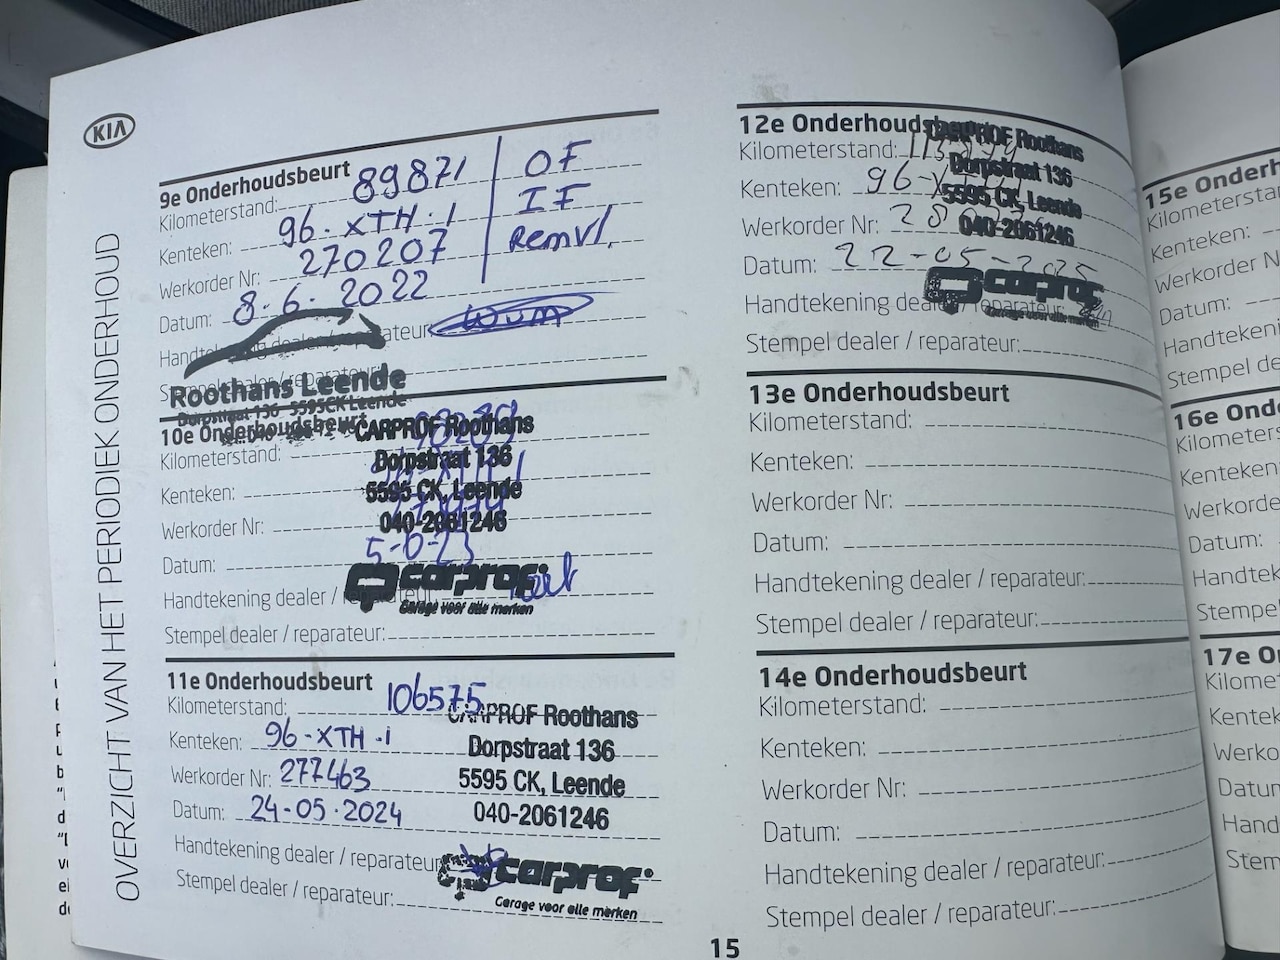 KIA
OVERZICHT VAN HET PERIODIEK ONDERHOUD
9e Onderhoudsbeurt
Kilometerstand: 89871
Kenteken: 96-XTH-1
Werkorder Nr: 270207
Datum: 8-6-2022
OF
IF
Remvl.
Handtekening dealer / reparateur:
Stempel dealer / reparateur:
Roothans Leende
Dorpstraat 136 5595CK Leende
10e Onderhoudsbeurt
Kilometerstand:
Kenteken:
Werkorder Nr:
Datum:
Handtekening dealer / reparateur:
Stempel dealer / reparateur:
CARPROF Roothans
Dorpstraat 136
5595 CK, Leende
040-2061246
carprof
Garage voor alle merken
11e Onderhoudsbeurt
Kilometerstand: 106575
Kenteken: 96-XTH-1
Werkorder Nr: 277463
Datum: 24-05-2024
Handtekening dealer / reparateur
Stempel dealer / reparateur:
CARPROF Roothans
Dorpstraat 136
5595 CK, Leende
040-2061246
carprof
Garage voor alle merken
12e Onderhoudsbeurt
Kilometerstand:
Kenteken: 96-
Werkorder Nr:
Datum: 22-05-2025
Handtekening dealer / reparateur:
Stempel dealer / reparateur:
CARPROF Roothans
Dorpstraat 136
5595 CK, Leende
040-2061246
carprof
Garage voor alle merken
13e Onderhoudsbeurt
Kilometerstand:
Kenteken:
Werkorder Nr:
Datum:
Handtekening dealer / reparateur:
Stempel dealer / reparateur:
14e Onderhoudsbeurt
Kilometerstand:
Kenteken:
Werkorder Nr:
Datum:
Handtekening dealer / reparateur:
Stempel dealer / reparateur:
15
15e Onderh
Kilometersta
Kenteken:
Werkorder N
Datum:
Handtekeni
Stempel de
16e Ond
Kilometers
Kenteken
Werkorde
Datum:
Handtek
Stempe
17e O
Kilome
Kentek
Werko
Datum
Hand
Stem